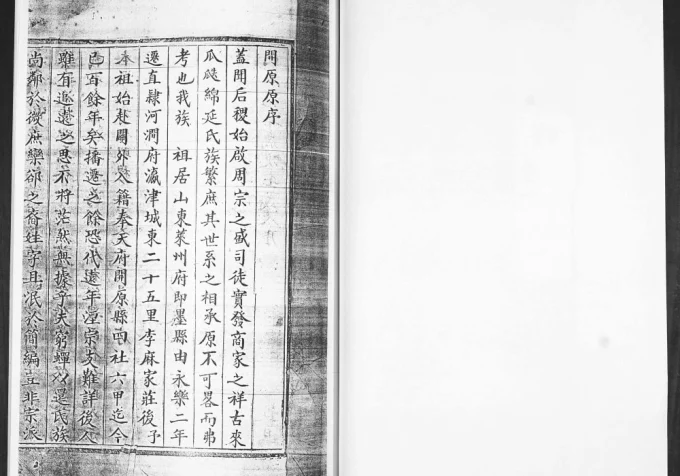 開原原序
蓋聞后稷始啟周宗之盛司徒實發商家之祥古來
瓜瓞綿延氏族繁庶其世系之相承原不可畧而弗
考也我族 祖居山東萊州府即墨縣由永樂二年
遷直隸河澗府瀛津城東二十五里李麻家莊後予
本祖始赴關外入籍奉天府開原縣屯社六甲迄今
百餘年矣播遷之餘恐代遠年湮宗支難詳後人
雖有追遠之思不將茫然無據乎夫窮蟬以還氏族
尚鄰於微庶欒卻之裔姓字且泯於簡編豈非宗派